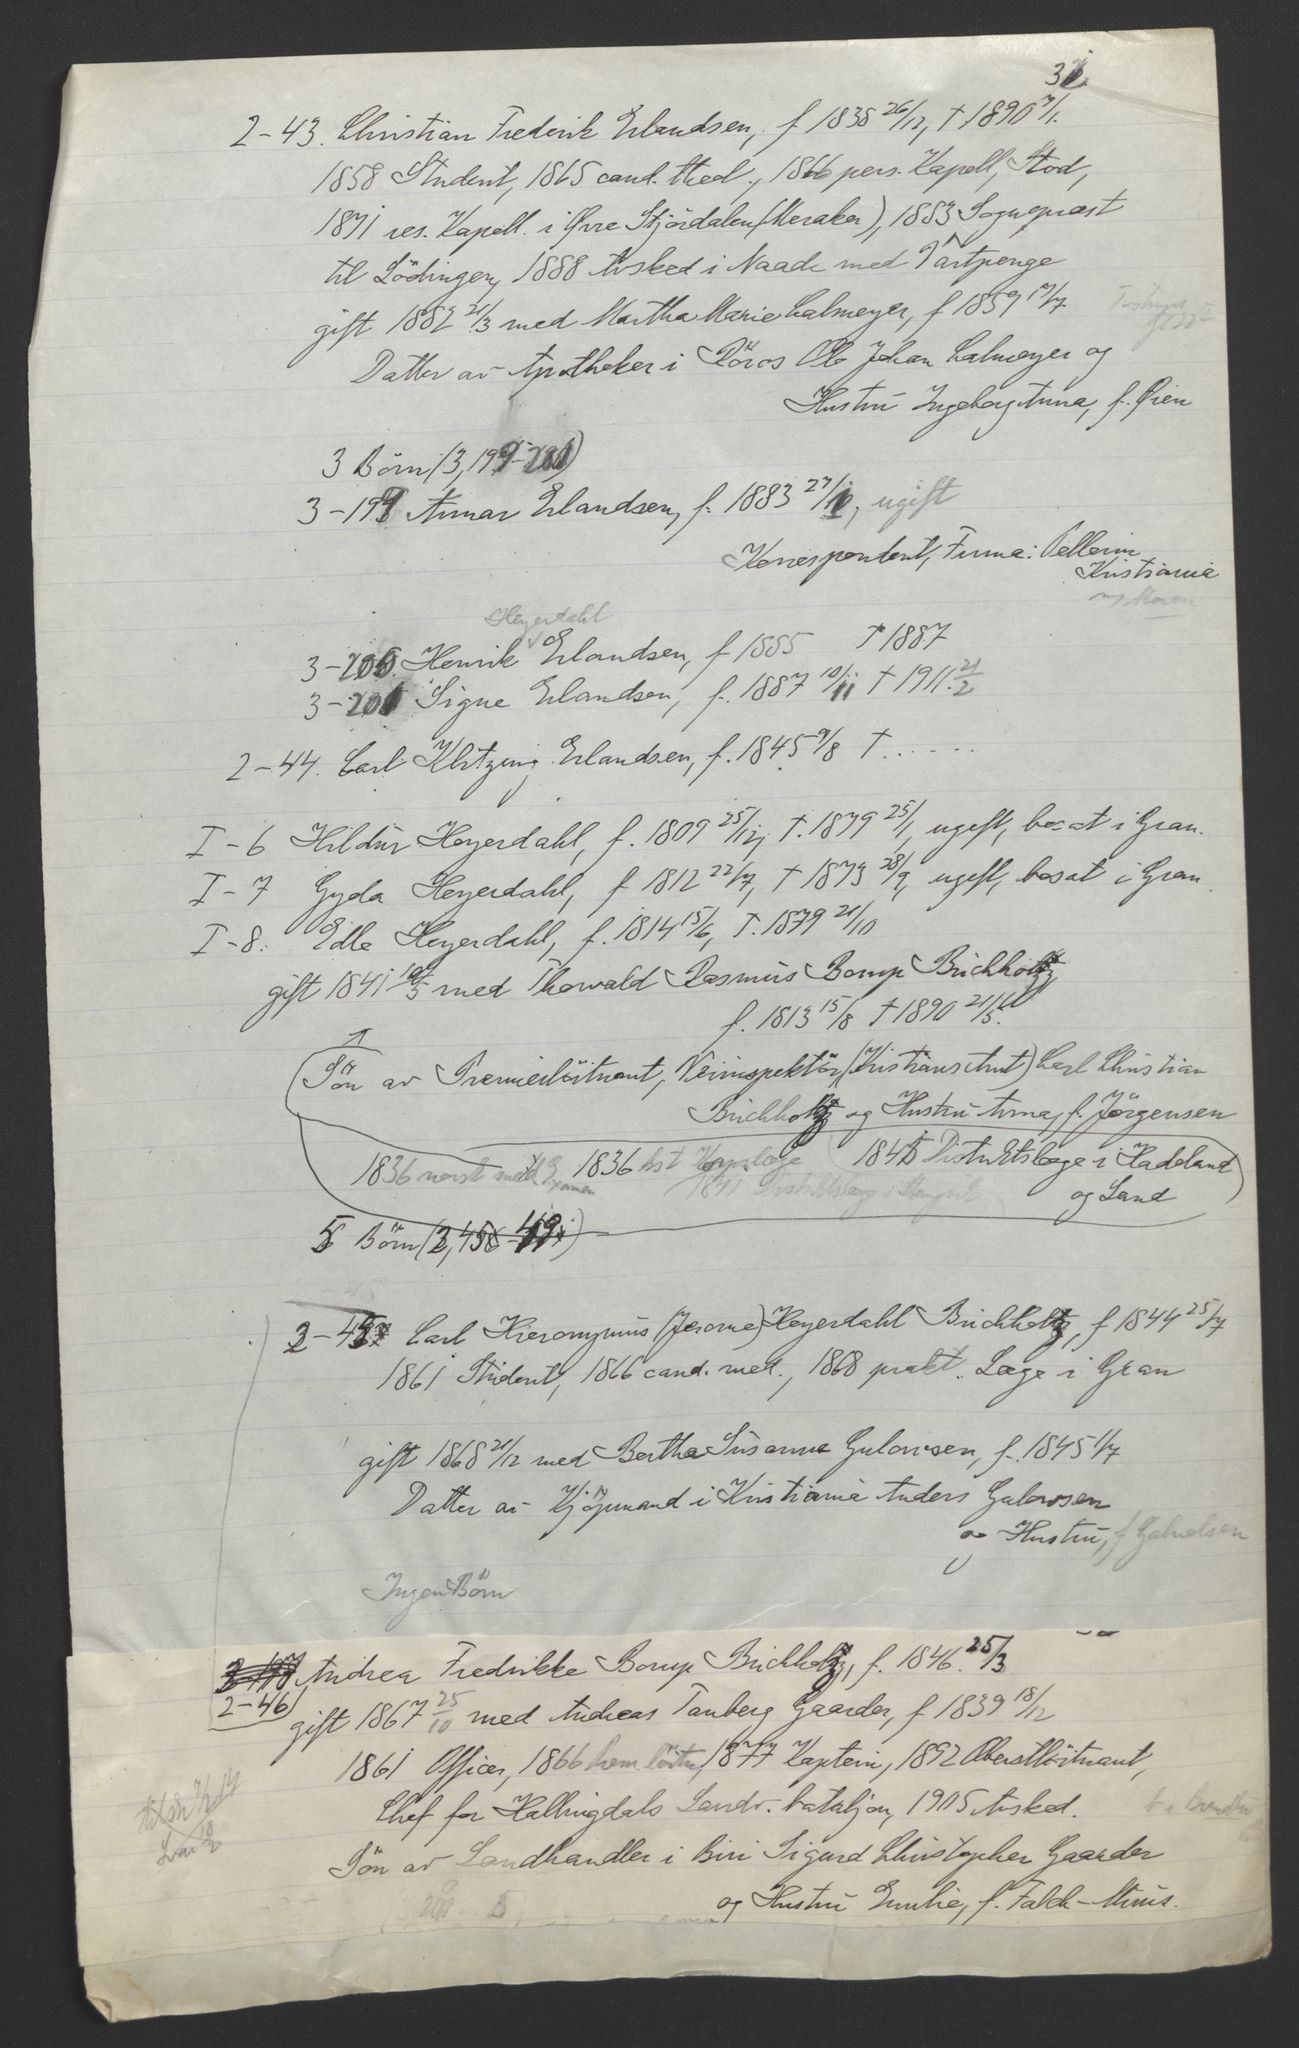 2-43. Christian Frederik Erlandsen, f 1838 26/12, † 1890 7/1.
1858 Student, 1865 cand. theol., 1866 pers. Kapell, Stod,
1871 res. Kapell. i Øvre Stjördalen (Meraker), 1883 Sognepræst
til Lödingen, 1888 Avsked i Naade med Vartpenge
gift 1882 21/3 med Martha Marie Calmeyer, f 1859 17/7
Datter av Apotheker i Röros Ole Johan Calmeyer og
Hustru Ingeborg Anna, f. Øien
3 Börn (3, 199-201)
3-199 Annar Erlandsen, f. 1883 27/11, ugift
Korrespondent, Firma: Pellerin
Kristiania
Heyerdahl
3-200. Henrik Erlandsen, f 1885 † 1887
3-201 Signe Erlandsen, f. 1887 10/11 † 1911. 21/2
2-44. Carl Klitzing Erlandsen, f. 1845 9/8 † . . . . . .
I-6 Hildur Heyerdahl, f. 1809 25/12, †. 1879 25/1, ugift, bosat i Gran.
I-7 Gyda Heyerdahl, f 1812 22/7, † 1873 28/9, ugift, bosat i Gran.
I-8. Edle Heyerdahl, f. 1814 15/6, †. 1879 21/10
gift 1841 10/5 med Thorvald Rasmus Borup Buchholtz
f. 1813 15/8 † 1890 21/5.
(Sön av Premierlöitnant, Veiinspektör (Kristians Amt) Carl Christian
Buchholtz og Hustru Anna, f. Jörgensen
1836 norsk med Examen 1836 Korpslæge 1845 Distriktslæge i Hadeland
1841 Distriktslæge i
og Land
5 Börn (2, 45-49)
2-45 Carl Hieronymus (Jerome) Heyerdahl Buchholtz, f 1844 25/7
1861 Student, 1866 cand. med., 1868 prakt. Læge i Gran
gift 1868 21/12 med Bertha Susanne Gulowsen, f. 1845 1/7
Datter av Kjöpmand i Kristiania Anders Gulowsen
og Hustru, f Gabrielsen
Ingen Börn
Andrea Fredrikke Borup Buchholtz, f. 1846. 25/3
2-46
gift 1867 25/10 med Andreas Tanberg Gaarder, f 1839 18/12
1861 Officer, 1866 Prem löitn, 1877 Kaptein, 1892 Oberstlöitnant,
Chef for Hallingdals Landv. bataljon, 1905 Avsked.
Sön av Landhandler i Biri Sigurd Christopher Gaarder
og Hustru Emilie, f. Falck-Muus.